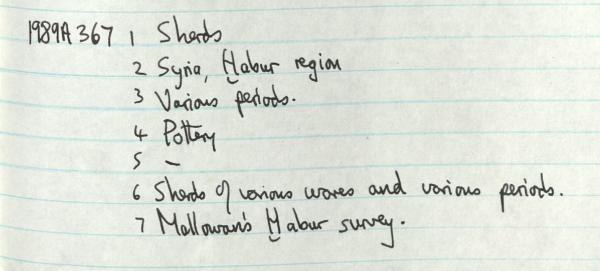 1989A367 1 Sherds
2 Syria, Ḫabur region
3 Various periods.
4 Pottery
5 –
6 Sherds of various wares and various periods.
7 Mallowan's Ḫabur survey.